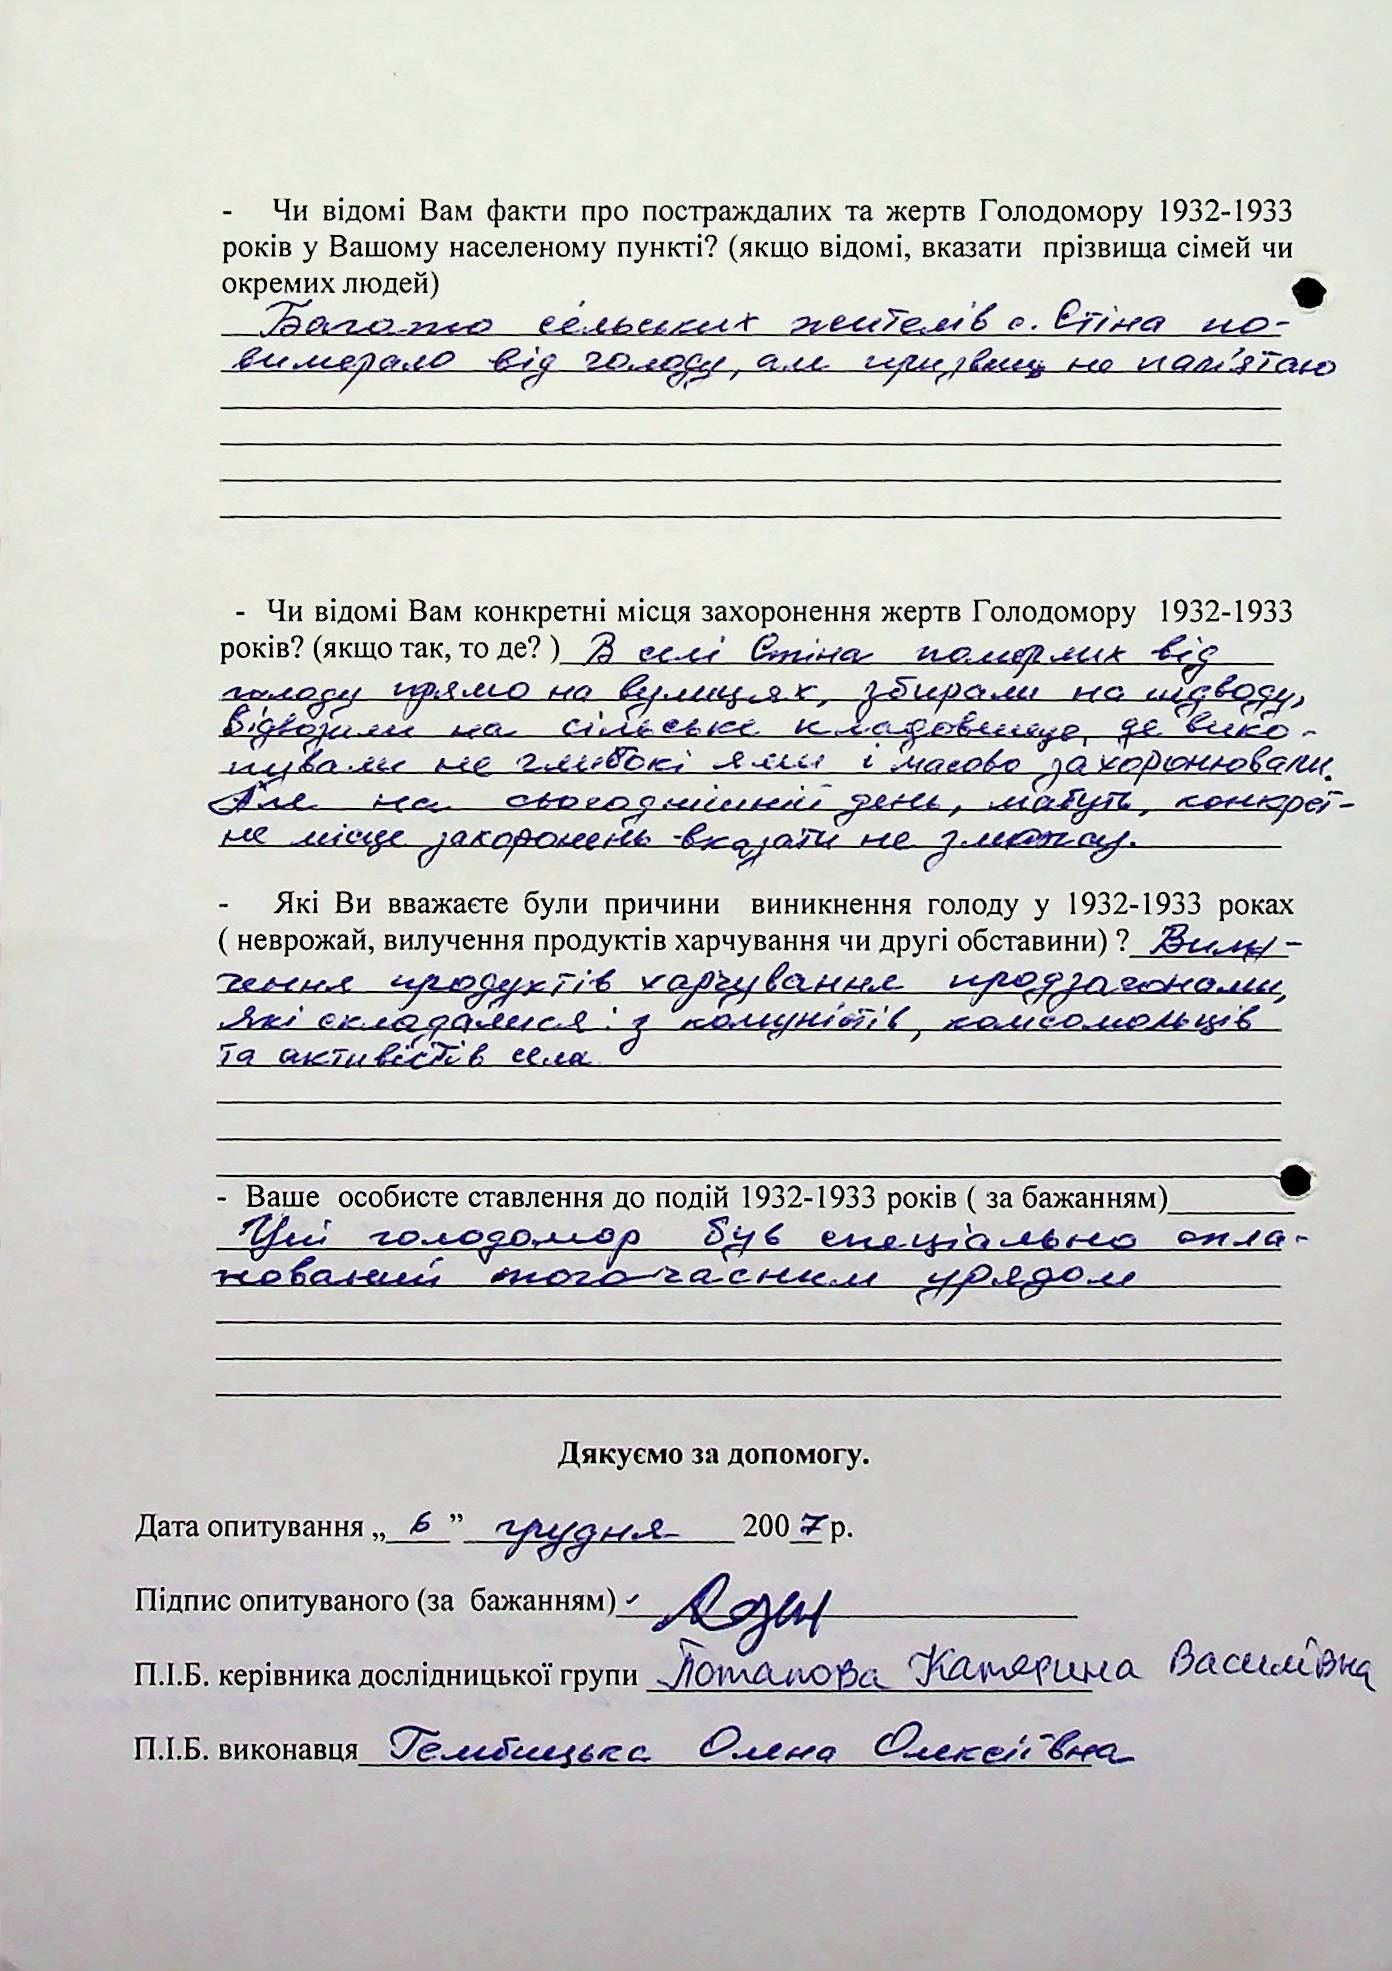 - Чи відомі Вам факти про постраждалих та жертв Голодомору 1932-1933
років у Вашому населеному пункті? (якщо відомі, вказати прізвища сімей чи
окремих людей)
Багато сельських жителів с. Стіна по-
вимерало від голоду, але призвищ не пам'ятаю
- Чи відомі Вам конкретні місця захоронення жертв Голодомору 1932-1933
років? (якщо так, то де? ) В селі Стіна померлих від
голоду прямо на вулицях, збирали на підводу,
відвозили на сільське кладовище, де вико-
пували не глибокі ями і масово захоронювали.
Але на сьогоднішній день, мабуть, конкрет-
не місце захоронень вказати не зможу.
- Які Ви вважаєте були причини виникнення голоду у 1932-1933 роках
( неврожай, вилучення продуктів харчування чи другі обставини) ? Вилу-
чення продуктів харчування продзагонами,
які складалися: з комуністів, комсомольців
та активістів села
- Ваше особисте ставлення до подій 1932-1933 років ( за бажанням)
Цей голодомор був спеціально спла-
нований тогочасним урядом
Дякуємо за допомогу.
Дата опитування „ 6 ” грудня 2007 р.
Підпис опитуваного (за бажанням)
П.І.Б. керівника дослідницької групи Потапова Катерина Василівна
П.І.Б. виконавця Гембицька Олена Олексіївна